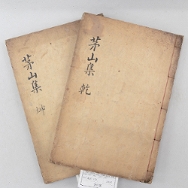 茅山集 乾
茅山集 坤